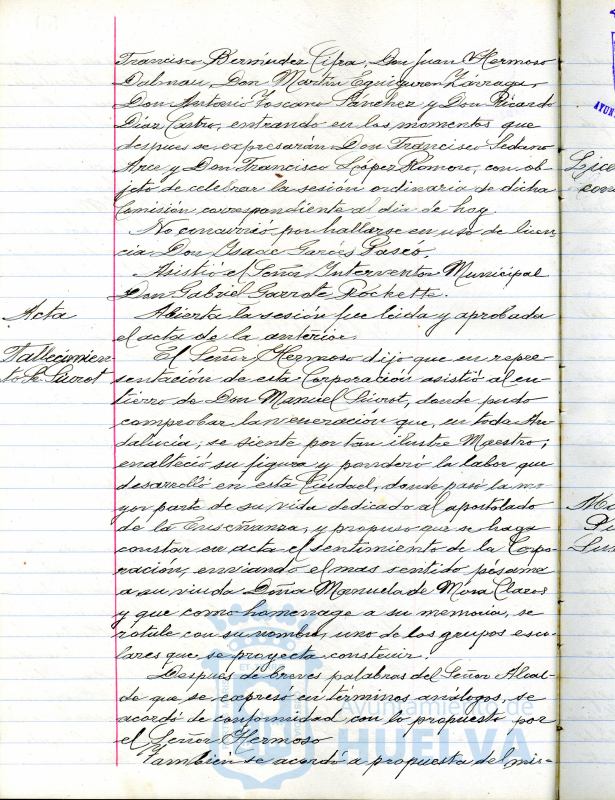 Francisco Bermúdez Cifra, Don Juan Hermoso
Dalmau, Don Martín Eguiguren Zárraga,
Don Antonio Toscano Sánchez y Don Ricardo
Díaz Castro, entrando en los momentos que
despues se expresarán Don Francisco Sedano
Arce y Don Francisco López Romero, con ob-
jeto de celebrar la sesión ordinaria de dicha
Comisión correspondiente al dia de hoy.
No concurrió por hallarse en uso de licen-
cia Don Isaac Garcés Pascó.
Asistió el Señor Interventor Municipal
Don Gabriel Garrote Rockette.
Acta
Abierta la sesión fue leida y aprobada
el acta de la anterior.
Fallecimien-
to Sr. Siurot
El Señor Hermoso dijo que en repre-
sentación de esta Corporación asistió al en-
tierro de Don Manuel Siurot, donde pudo
comprobar la veneración que, en toda An-
dalucía, se siente por tan ilustre Maestro;
enalteció su figura y ponderó la labor que
desarrolló en esta Ciudad, donde pasó la ma-
yor parte de su vida dedicado al apostolado
de la Enseñanza, y propuso que se haga
constar en acta el sentimiento de la Corpo-
ración, enviando el mas sentido pésame
a su viuda Doña Manuela de Mora Claros
y que como homenage a su memoria, se
rotule con su nombre, uno de los grupos esco-
lares que se proyecta construir.
Despues de breves palabras del Señor Alcal-
de que se expresó en términos análogos, se
acordó de conformidad con lo propuesto por
el Señor Hermoso
Tambien se acordó a propuesta del mis-
Ayuntamiento de
HUELVA